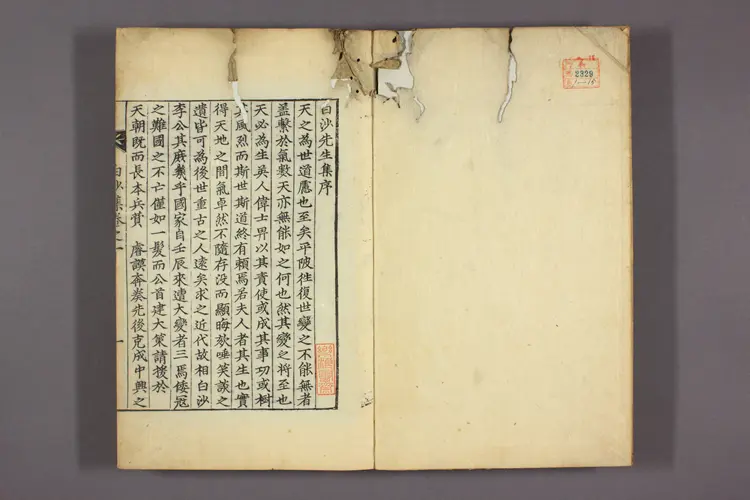 2329
白沙先生集序
天之為世道慮也至矣平陂往復世變之不能無者
蓋繫於氣數天亦無能如之何也然其變之將至也
天必為生人偉士畀以其責使或成其事功或樹
其風烈而斯世斯道終有賴焉若夫人者其生也實
得天地之間氣卓然不隨存没而顯晦欬唾笑談之
遺皆可為後世重古之人遠矣求之近代故相白沙
李公其庶幾乎國家自壬辰來遭大變者三焉倭冦
之難國之不亡僅如一髮而公首建大策請援於
天朝既而長本兵賛 睿謨奔奏先後克成中興之
白沙集卷之一
一